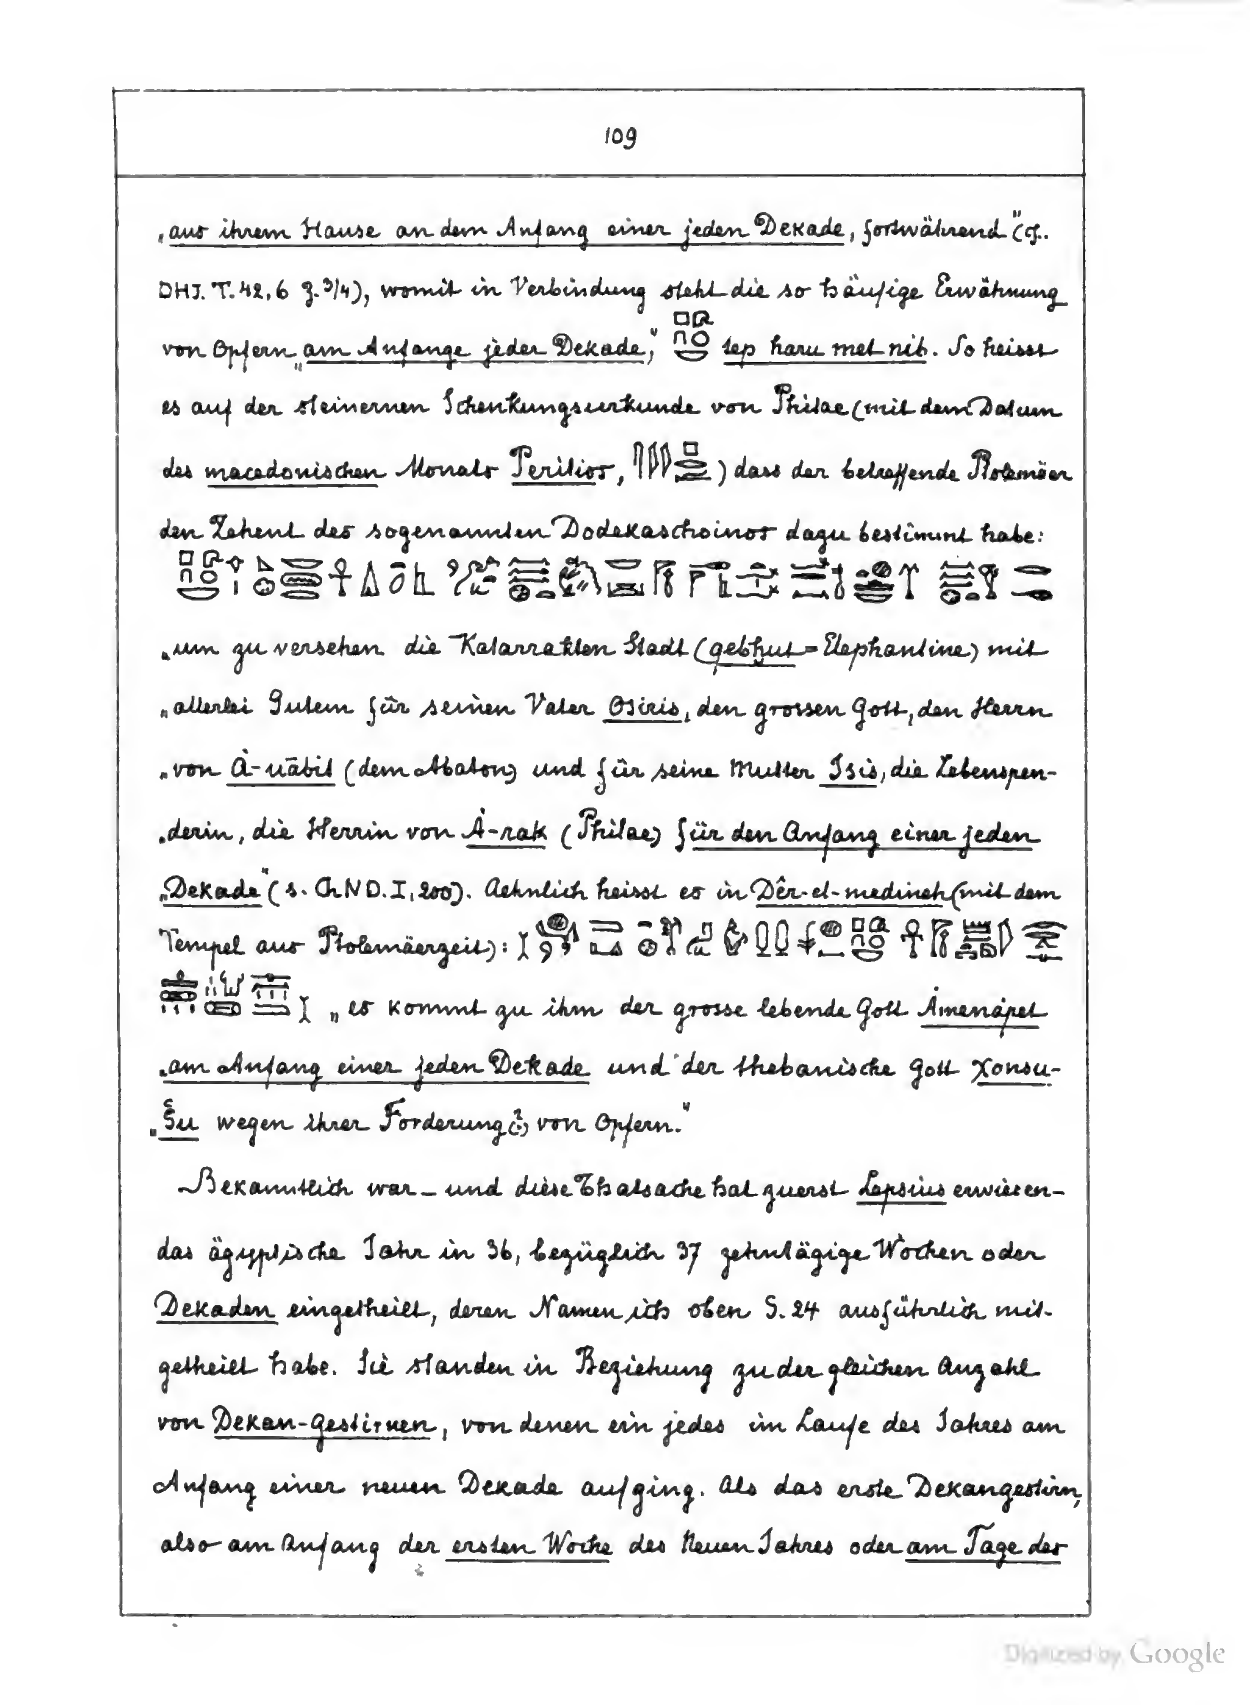 109
„aus ihrem Hause an dem Anfang einer jeden Dekade, fortwährend" (cf.
DHI. T. 42, 6 Z. 3/4), womit in Verbindung steht die so häufige Erwähnung
von Opfern „am Anfange jeder Dekade," tep haru met nib. So heisst
es auf der steinernen Schenkungsurkunde von Philae (mit dem Datum
des macedonischen Monats Peritios, ) dass der betreffende Ptolemäer
den Zehent des sogenannten Dodekaschoinos dazu bestimmt habe:
„um zu versehen die Katarrakten Stadt (qebḥut = Elephantine) mit
„allerlei Gutem für seinen Vater Osiris, den grossen Gott, den Herrn
„von Á-uābit (dem Abaton) und für seine Mutter Isis, die Lebenspen-
„derin, die Herrin von Á-rak (Philae) für den Anfang einer jeden
„Dekade" (s. Ch. ND. I, 200). Aehnlich heisst es in Dêr-el-medineh (mit dem
Tempel aus Ptolemäerzeit):
„es kommt zu ihm der grosse lebende Gott Ámenápet
„am Anfang einer jeden Dekade und der thebanische Gott Xonsu-
„Šu wegen ihrer Forderung (?) von Opfern."
Bekanntlich war – und diese Thatsache hat zuerst Lepsius erwiesen –
das ägyptische Jahr in 36, bezüglich 37 zehntägige Wochen oder
Dekaden eingetheilt, deren Namen ich oben S. 24 ausführlich mit-
getheilt habe. Sie standen in Beziehung zu der gleichen Anzahl
von Dekan-Gestirnen, von denen ein jedes im Laufe des Jahres am
Anfang einer neuen Dekade aufging. Als das erste Dekangestirn,
also am Anfang der ersten Woche des Neuen Jahres oder am Tage des
Digitized by Google